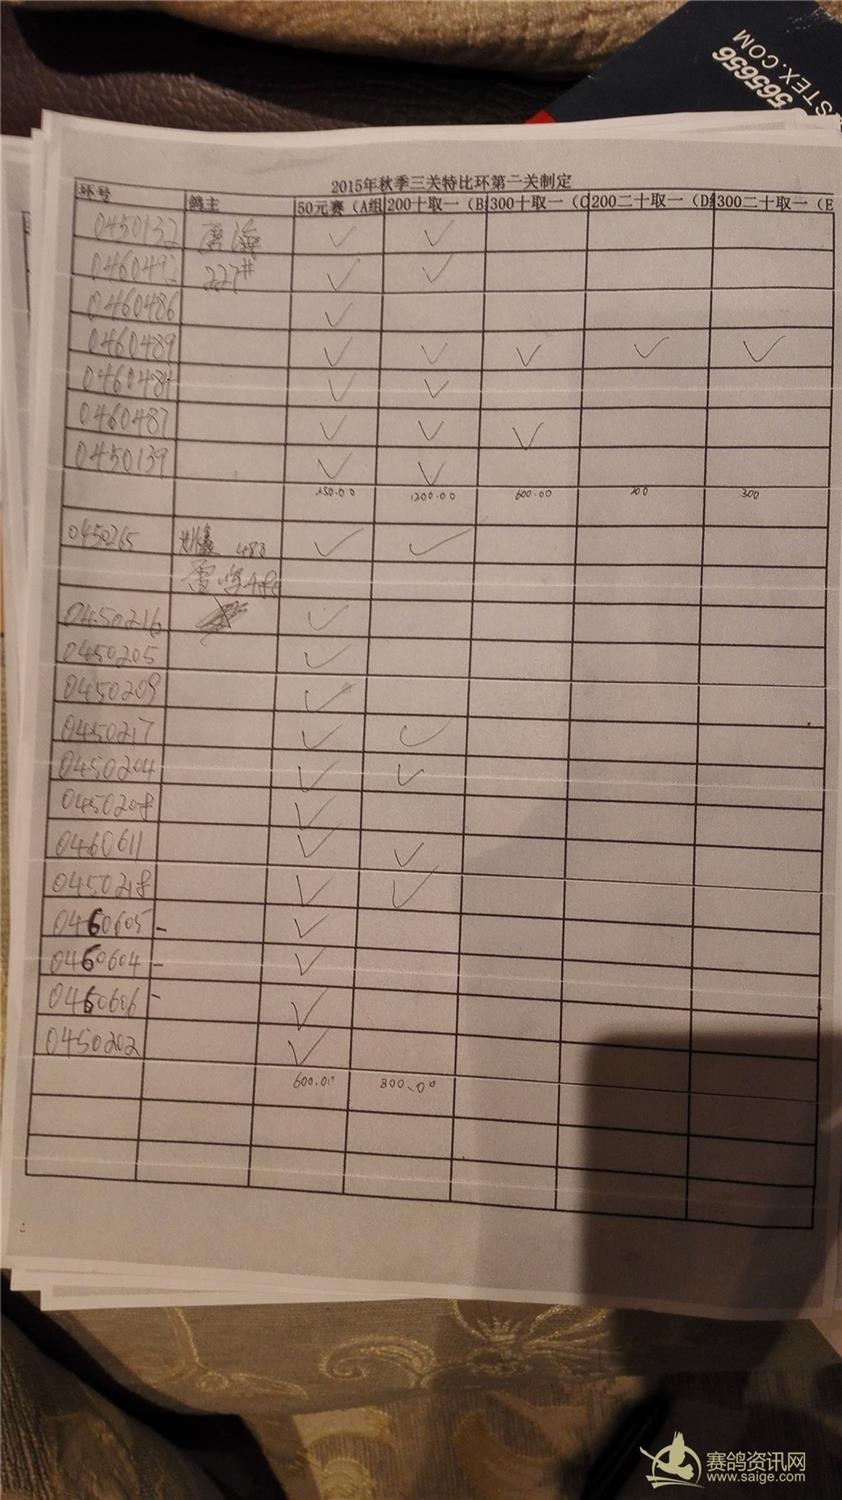 565656
STEX.COM
2015年秋季三关特比环第二关制定
环号 鸽主 50元赛（A组 200十取一（B 300十取一（C 200二十取一（D组 300二十取一（E
0450132 唐海 ✓ ✓
0460492 227# ✓ ✓
0460486 ✓
0460489 ✓ ✓ ✓ ✓ ✓
0460484 ✓ ✓
0460487 ✓ ✓ ✓
0450139 ✓ ✓
350.00 1200.00 600.00 200 300
0450265 488 ✓ ✓
0450216 ✓
0450205 ✓
0450209 ✓
0450217 ✓ ✓
0450204 ✓ ✓
0450208 ✓
0460611 ✓ ✓
0450218 ✓ ✓
0460605 - ✓
0460604 - ✓
0460606 - ✓
0450202 ✓
600.00 800.00
赛鸽资讯网
www.saige.com